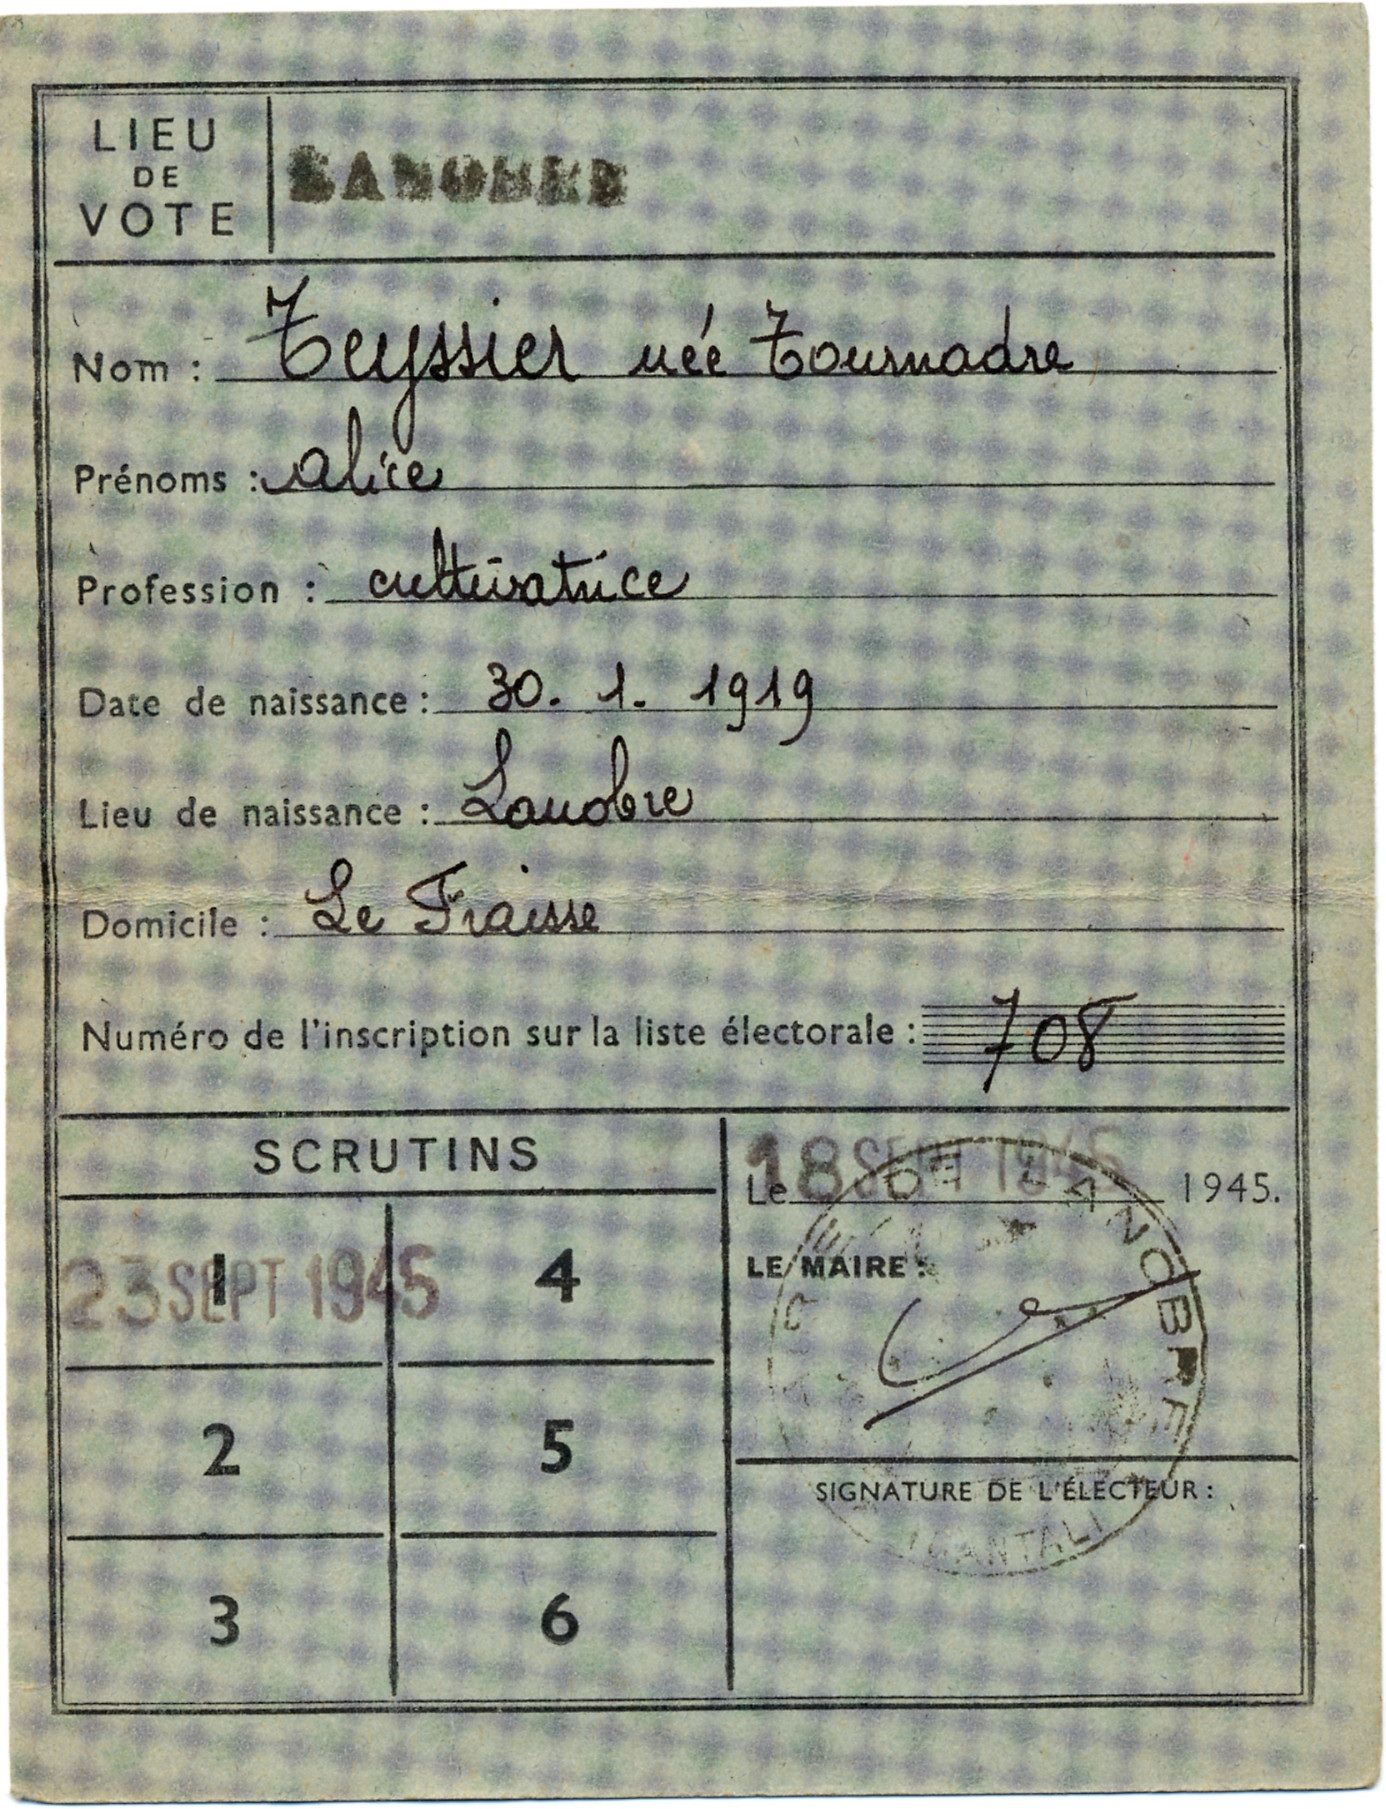 LIEU
DE
VOTE
LANOBRE
Nom : Teyssier née Tournadre
Prénoms : Alice
Profession : cultivatrice
Date de naissance : 30. 1. 1919
Lieu de naissance : Lanobre
Domicile : Le Fraisse
Numéro de l'inscription sur la liste électorale : 708
SCRUTINS
1
23 SEPT 1945
4
2
5
3
6
Le 18 SEPT 1945 1945.
LE MAIRE :
DE LANOBRE
(CANTAL)
SIGNATURE DE L'ÉLECTEUR :